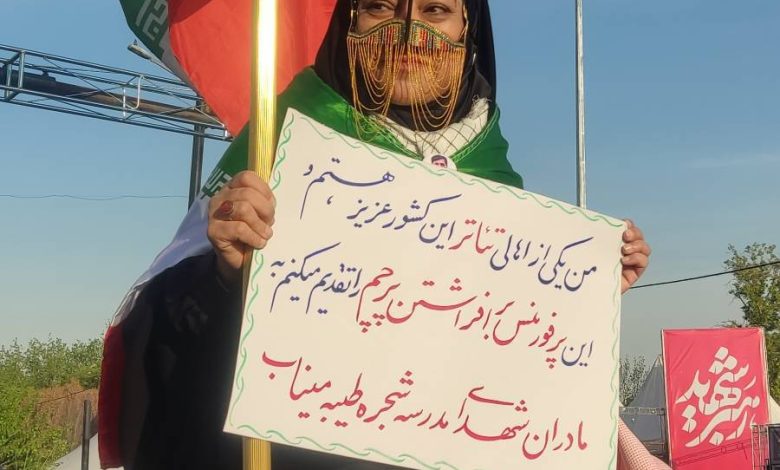 من یکی از اهالی تئاتر این کشور عزیز هستم و
این پرفورمنس بر افراشتن پرچم را تقدیم میکنم به
مادران شهدای مدرسه شجره طیبه میناب
رهبر شهید